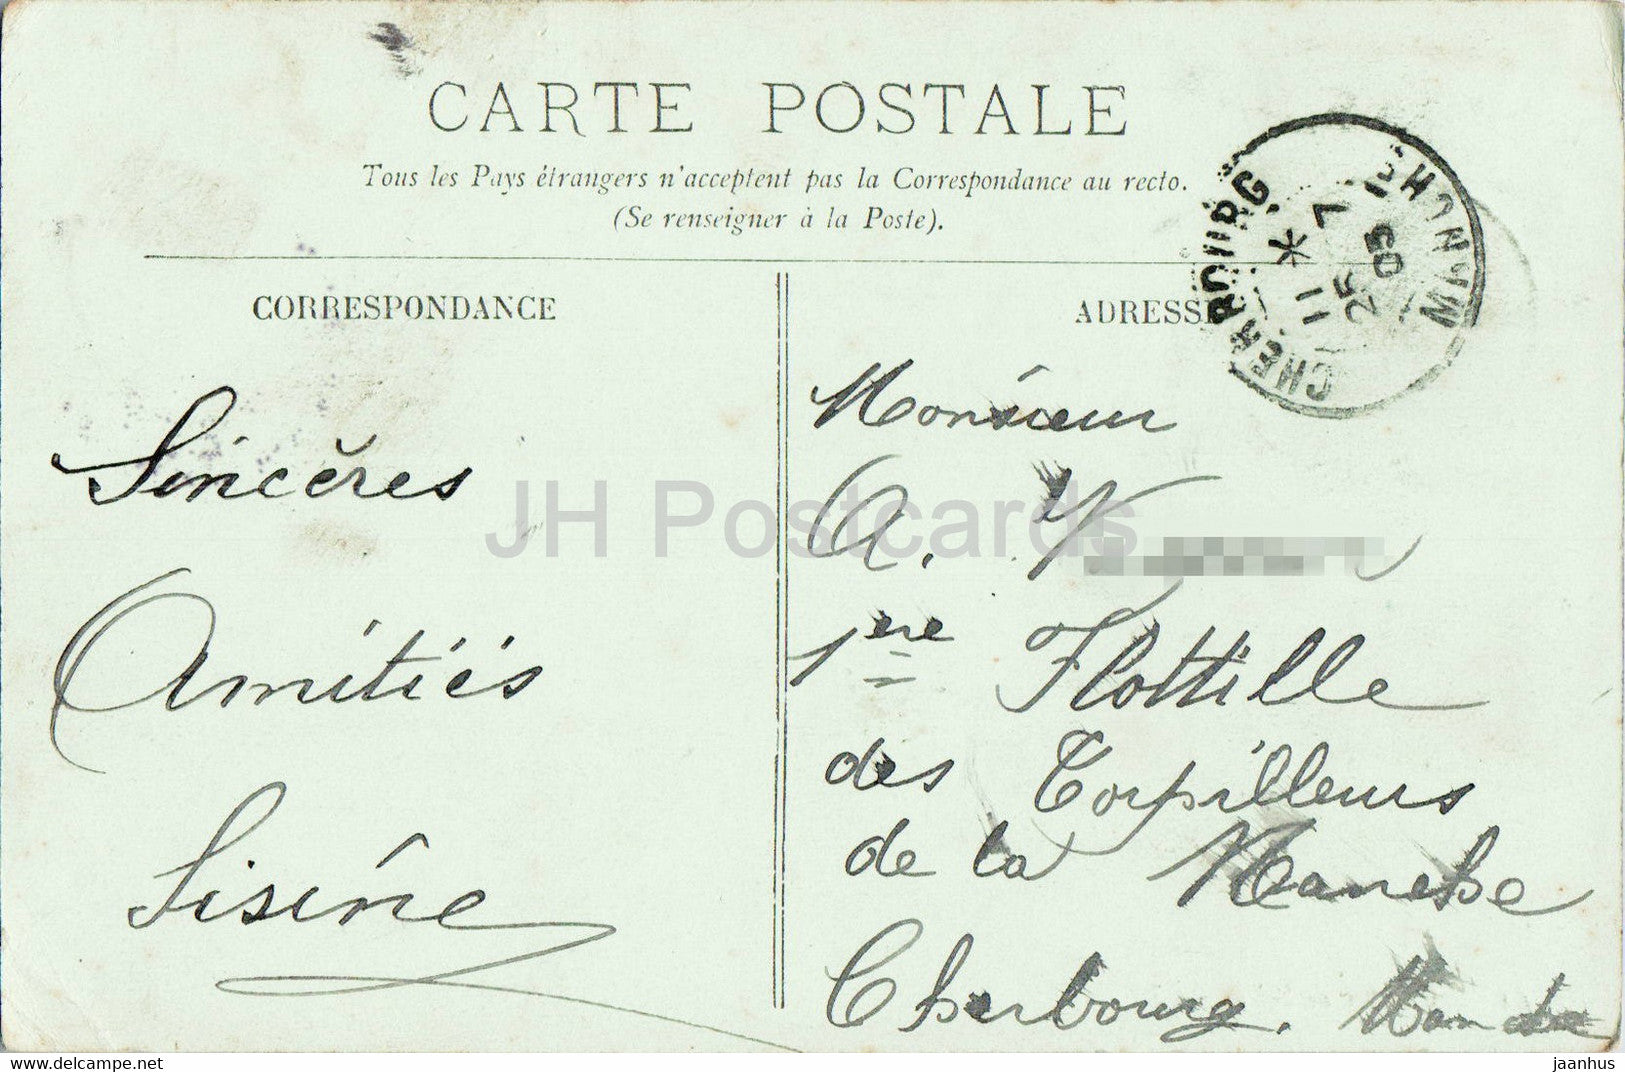 CARTE POSTALE
Tous les Pays étrangers n'acceptent pas la Correspondance au recto.
(Se renseigner à la Poste).
CORRESPONDANCE
ADRESSE
CHERBOURG
MANCHE
11 * 7
25
05
Sincères
Amitiés
Sisine
Monsieur
A. V
1ère Flottille
des Torpilleurs
de la Manche
Cherbourg. Manche
JH Postcards
https://www.delcampe.net
jaanhus